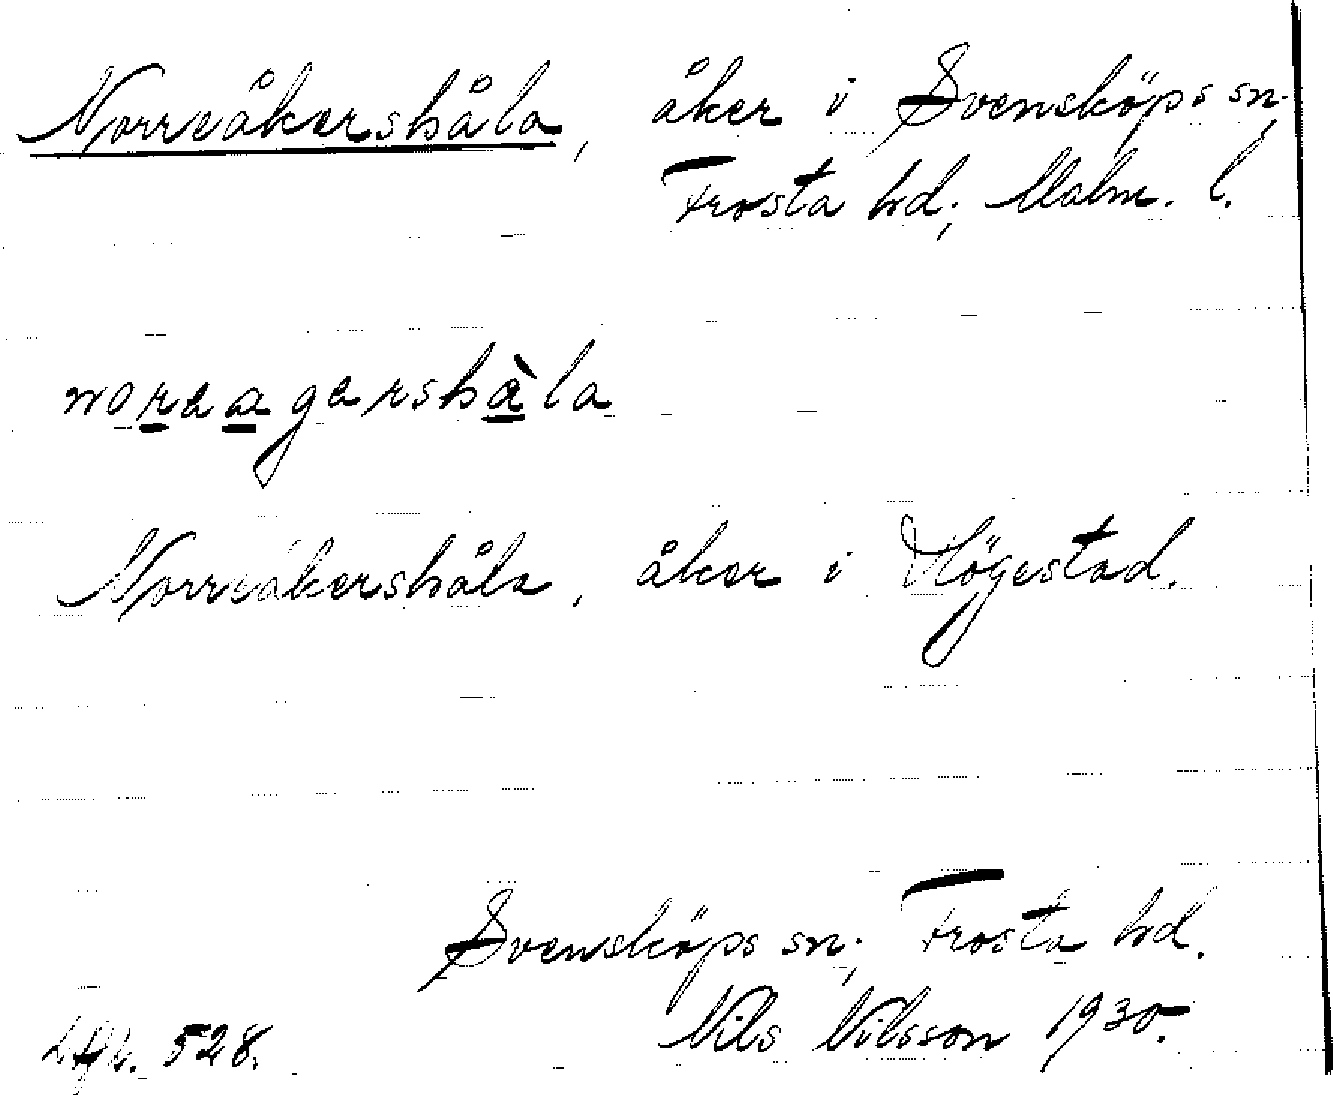 Norreåkershåla, åker i Svensköps sn.
Frosta hd; Malm. l.
noraagarshàla
Norreåkershåla, åker i Högestad.
Svensköps sn; Frosta hd.
Nils Nilsson 1930.
528.